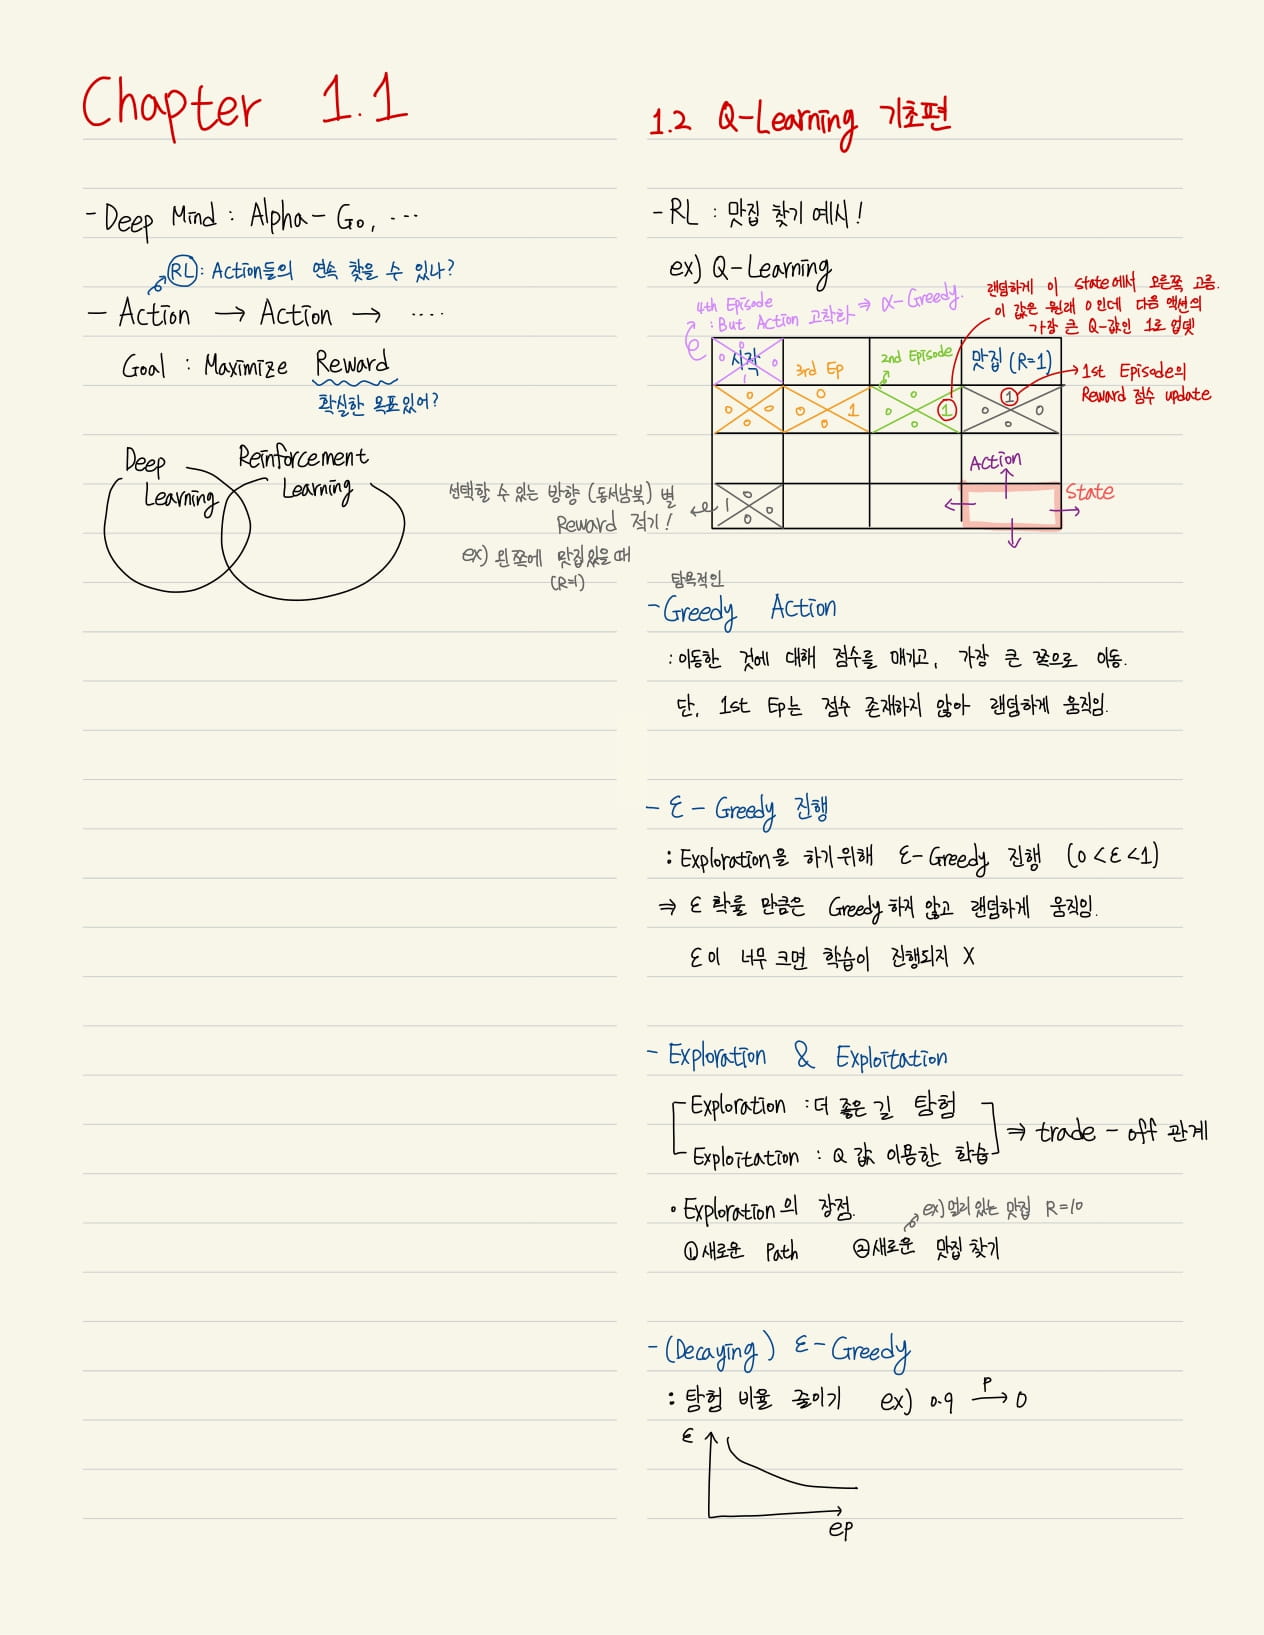 Chapter 1.1
- Deep Mind : Alpha-Go, ...
RL : Action들의 연속 찾을 수 있나?
- Action → Action → ....
Goal : Maximize Reward
확실한 목표있어?
Deep Learning
Reinforcement Learning
1.2 Q-Learning 기초편
- RL : 맛집 찾기 예시!
ex) Q-Learning
4th Episode
: But Action 고착화 → α-Greedy.
랜덤하게 이 state에서 오른쪽 고름.
이 값은 원래 0인데 다음 액션의
가장 큰 Q-값인 1로 업뎃
시작
3rd Ep
2nd Episode
맛집 (R=1)
1st Episode의
Reward 점수 update
0 0 0 1
0 0 0 0
0 0 0 1
0 0 0 1
1 0 0 0
Action
State
1 0 0 0
선택할 수 있는 방향 (동서남북) 별
Reward 적기!
ex) 왼쪽에 맛집있을때
(R=1)
탐욕적인
- Greedy Action
: 이동한 것에 대해 점수를 매기고, 가장 큰 쪽으로 이동.
단, 1st Ep는 점수 존재하지 않아 랜덤하게 움직임.
- ε - Greedy 진행
: Exploration을 하기위해 ε-Greedy 진행 (0<ε<1)
⇒ ε 확률 만큼은 Greedy하지 않고 랜덤하게 움직임.
ε이 너무 크면 학습이 진행되지 X
- Exploration & Exploitation
Exploration : 더 좋은 길 탐험
Exploitation : Q 값 이용한 학습
⇒ trade-off 관계
• Exploration의 장점.
ex) 멀리 있는 맛집 R=10
① 새로운 Path ② 새로운 맛집 찾기
- (Decaying) ε-Greedy
: 탐험 비율 줄이기 ex) 0.9 →P 0
ε
ep